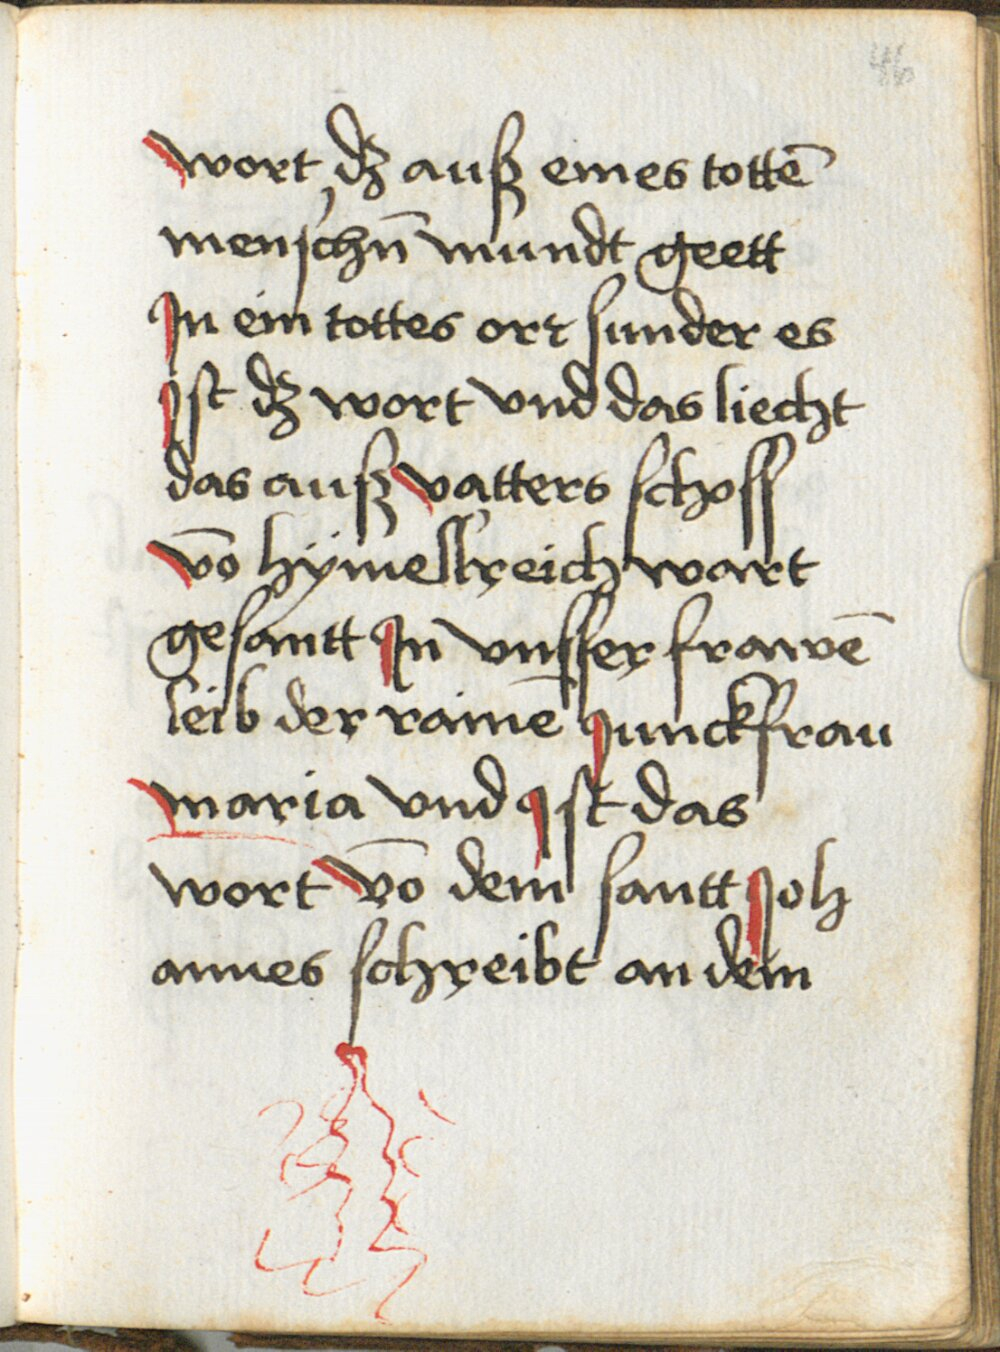 46
wort dʒ auß eines tottē
menschn̄ mundt geett
In ein tottes ort sunder es
Ist dʒ wort vnd das liecht
das auß vatters schoss
vō hÿmellreich wart
gesantt In vnsser frawē
leib der rainē Junckfrau
maria vnd Ist das
wort vō dem santt Joh
annes schreibt an dem